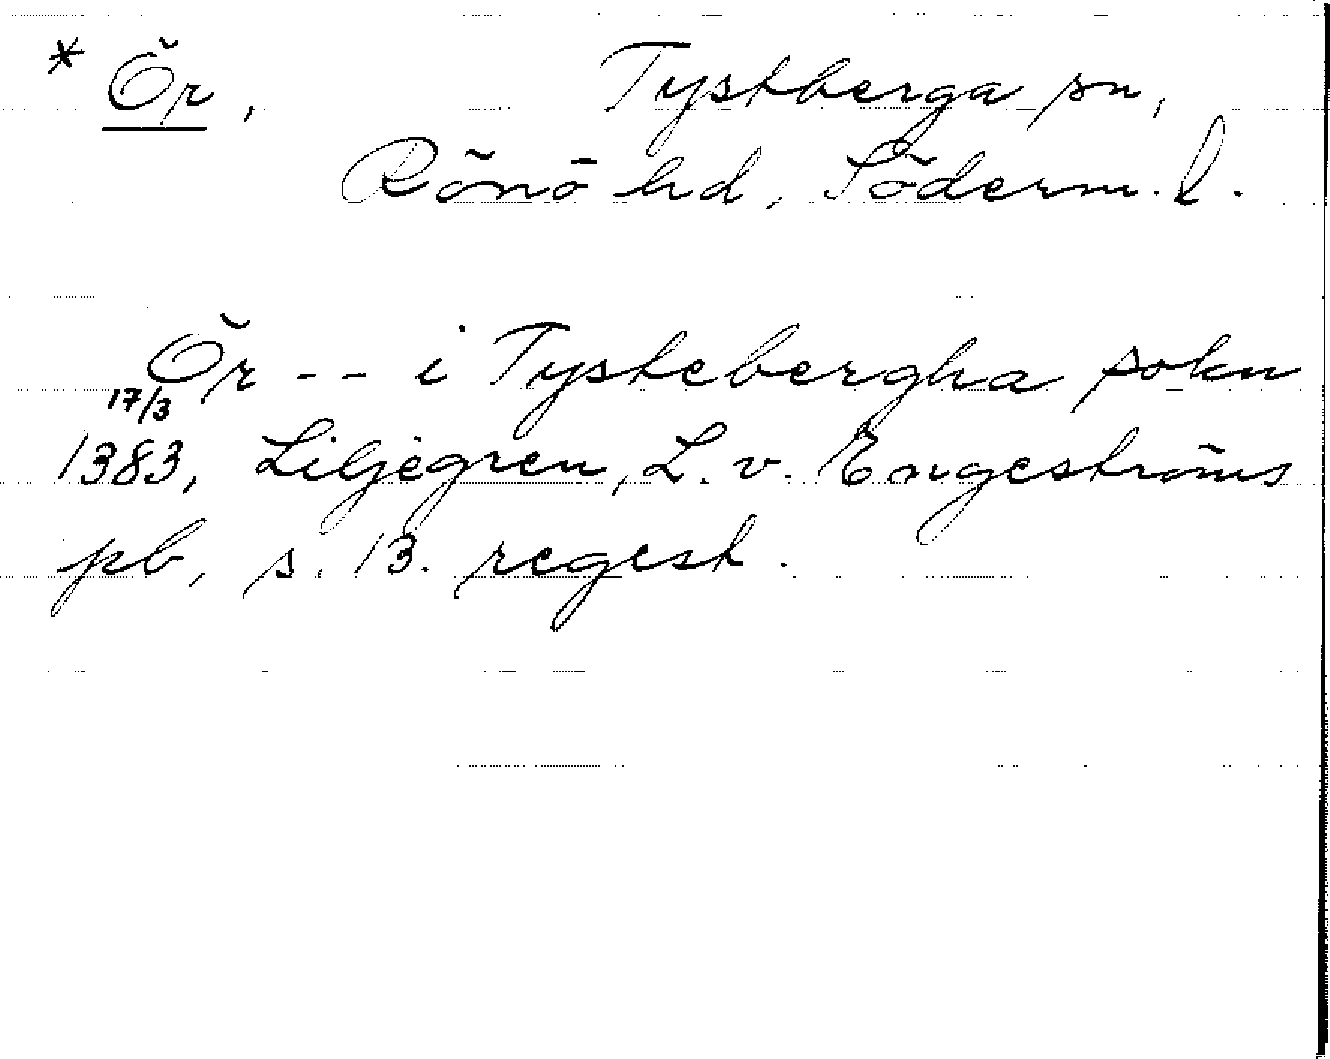 * Ör, Tystberga sn,
Rönö hd, Söderm. l.
Ör -- i Tystebergha sokn
17/3
1383, Liljegren, L. v. Engeströms
pb, s. 13. regest.